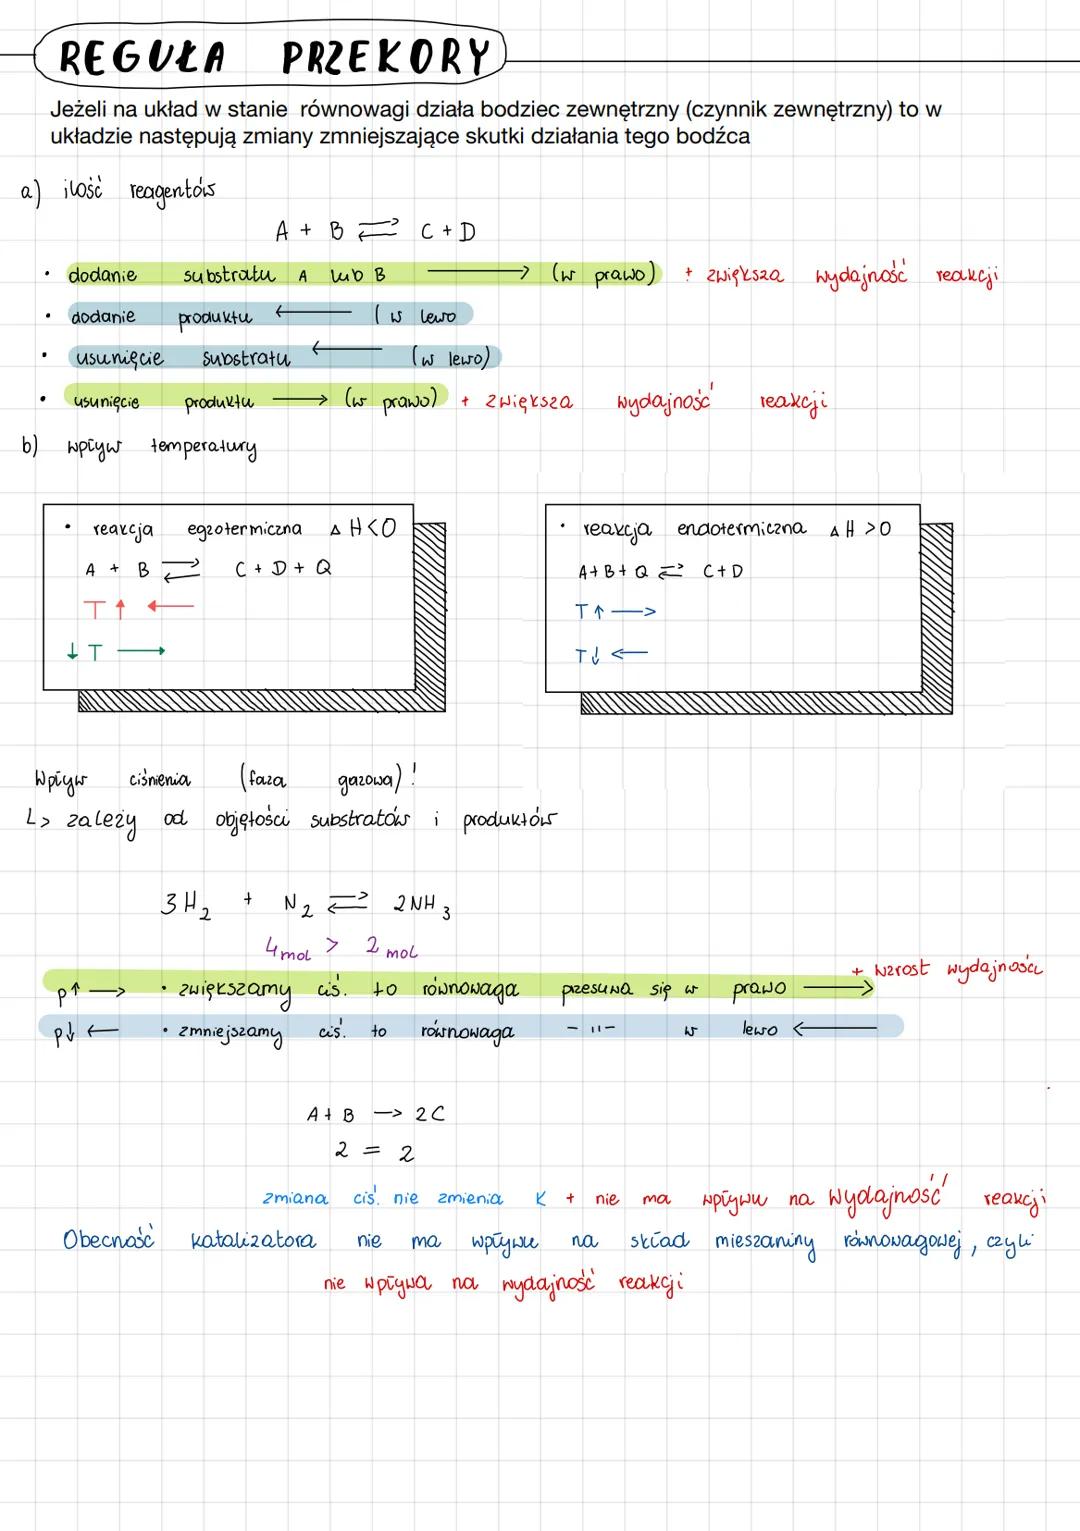 REGUŁA PRZEKORY
Jeżeli na układ w stanie równowagi działa bodziec zewnętrzny (czynnik zewnętrzny) to w
układzie następują zmiany zmniejszające skutki działania tego bodźca
a) ilość reagentów
A + B ⇄ C + D
• dodanie substratu A lub B ⟶ (w prawo) + zwiększa wydajność reakcji
• dodanie produktu ⟵ (w lewo
• usunięcie substratu ⟵ (w lewo)
• usunięcie produktu ⟶ (w prawo) + zwiększa wydajność reakcji
b) wpływ temperatury
• reakcja egzotermiczna ΔH<0
A + B ⇄ C + D + Q
T↑ ⟵
↓T ⟶
• reakcja endotermiczna ΔH >0
A+B+Q ⇄ C+D
T↑ ⟶
T↓ ⟵
Wpływ ciśnienia (faza gazowa)!
L> zależy od objętości substratów i produktów
3H₂ + N₂ ⇄ 2NH₃
4 mol > 2 mol
+ wzrost wydajności
p↑ ⟶ • zwiększamy ciś. to równowaga przesuwa się w prawo ⟶
p↓ ⟵ • zmniejszamy ciś. to równowaga -"- w lewo ⟵
A+B → 2C
2 = 2
zmiana ciś. nie zmienia K + nie ma wpływu na wydajność reakcji
Obecność katalizatora nie ma wpływu na skład mieszaniny równowagowej, czyli
nie wpływa na wydajność reakcji